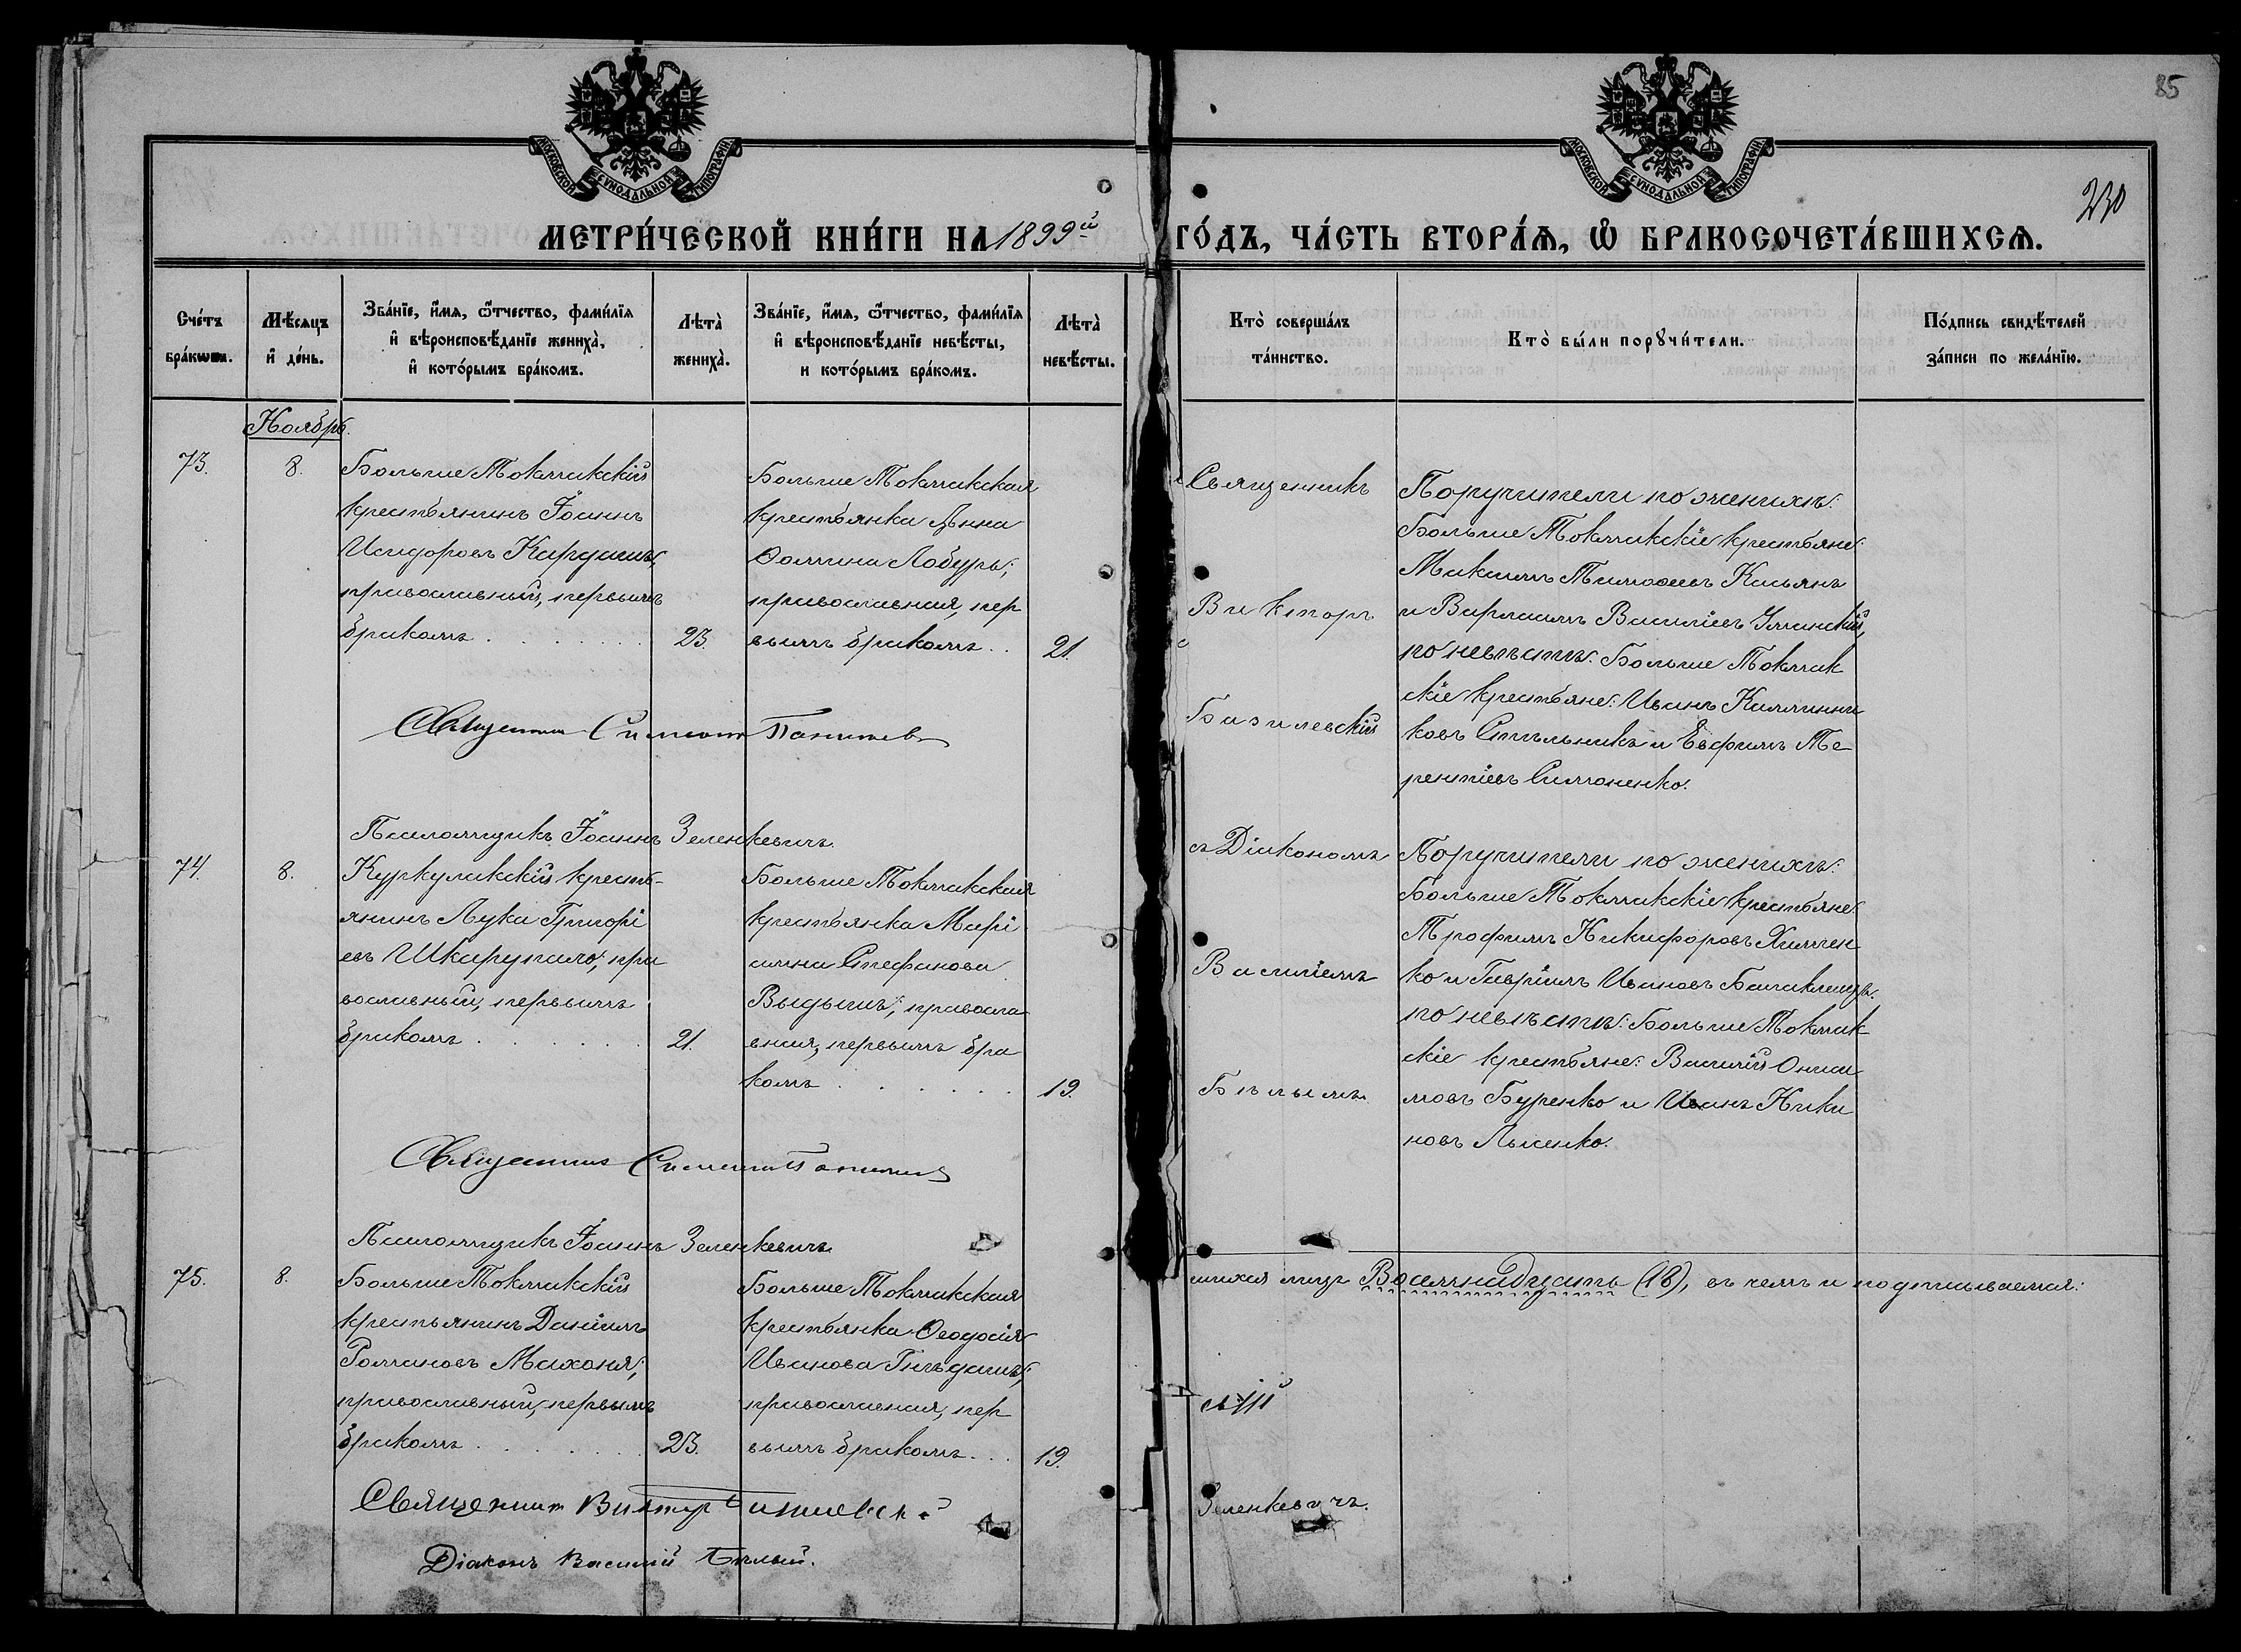 85
МОСКОВСКОЙ СѴНОДАЛЬНОЙ ТИПОГРАФІИ
МОСКОВСКОЙ СѴНОДАЛЬНОЙ ТИПОГРАФІИ
230
МЕТРИ́ЧЕСКОЙ КНИ́ГИ НА 1899й ГО́ДЪ, ЧА́СТЬ ВТОРА́Ѧ, Ѽ БРАКОСОЧЕТА́ВШИХСѦ.
Сче́тъ
бра́кωвъ.
Мѣ́сяцъ
и҆ де́нь.
Зва́нїе, и҆́мѧ, ѻ҆́тчество, фами́лїѧ
и҆ вѣроисповѣ́данїе жениха̀,
и҆ кото́рымъ бра́комъ.
Лѣта̀
жениха̀.
Зва́нїе, и҆́мѧ, ѻ҆́тчество, фами́лїѧ
и҆ вѣроисповѣ́данїе невѣ́сты,
и кото́рымъ бра́комъ.
Лѣта̀
невѣ́сты.
Кто̀ соверша́лъ
та́инство.
Кто̀ бы́ли порꙋчи́тели.
По́дпись свидѣ́телей
за́писи по жела́нїю.
Ноябрь.
73.
8.
Больше Токмакскій
крестьянинъ Іоаннъ
Исидоровъ Кардашъ;
православный, первымъ
бракомъ . . . . . .
23.
Больше Токмакская
крестьянка Анна
Ѳомина Лобурь;
православная, пер
вымъ бракомъ . .
21.
Священникъ
Викторъ
Базилевскій
Поручители по женихѣ:
Больше Токмакскіе крестьяне:
Максимъ Тимоѳеевъ Касьянъ
и Варлаамъ Василіевъ Уманскій,
по невѣстѣ: Больше Токмак
скіе крестьяне: Иванъ Каллинни
ковъ Стельникъ и Евфимъ Те
рентіевъ Симоненко.
Псаломщикъ Іоаннъ Зеленкевичъ.
74.
8.
Куркулакскій кресть-
янинъ Лука Григорі
евъ Шкарупало; пра
вославный, первымъ
бракомъ . . . . . .
21.
Больше Токмакская
крестьянка Марі
амна Стефанова
Выдышъ; правосла
вная, первымъ бра
комъ . . . . . .
19.
съ Діакономъ
Василіемъ
Бѣлымъ.
Поручители по женихѣ:
Больше Токмакскіе крестьяне:
Трофимъ Никифоровъ Химен
ко и Гавріилъ Ивановъ
по невѣстѣ: Больше Токмак
скіе крестьяне: Василій Ониси
мовъ Буренко и Иванъ Ника
новъ Лысенко.
Псаломщикъ Іоаннъ Зеленкевичъ.
75.
8.
Больше Токмакскій
крестьянинъ Даніилъ
Романовъ Махоня;
православный, первымъ
бракомъ . . . . . .
23.
Больше Токмакская
крестьянка Ѳеодосія
Иванова Гнѣдашъ;
православная, пер
вымъ бракомъ . . .
19.
шихся лицъ Восемнадцать (18), въ чемъ и подписываемся:
Священникъ Викторъ Базилевскій
Зеленкевичъ.
Діаконъ Василій Бѣлый.